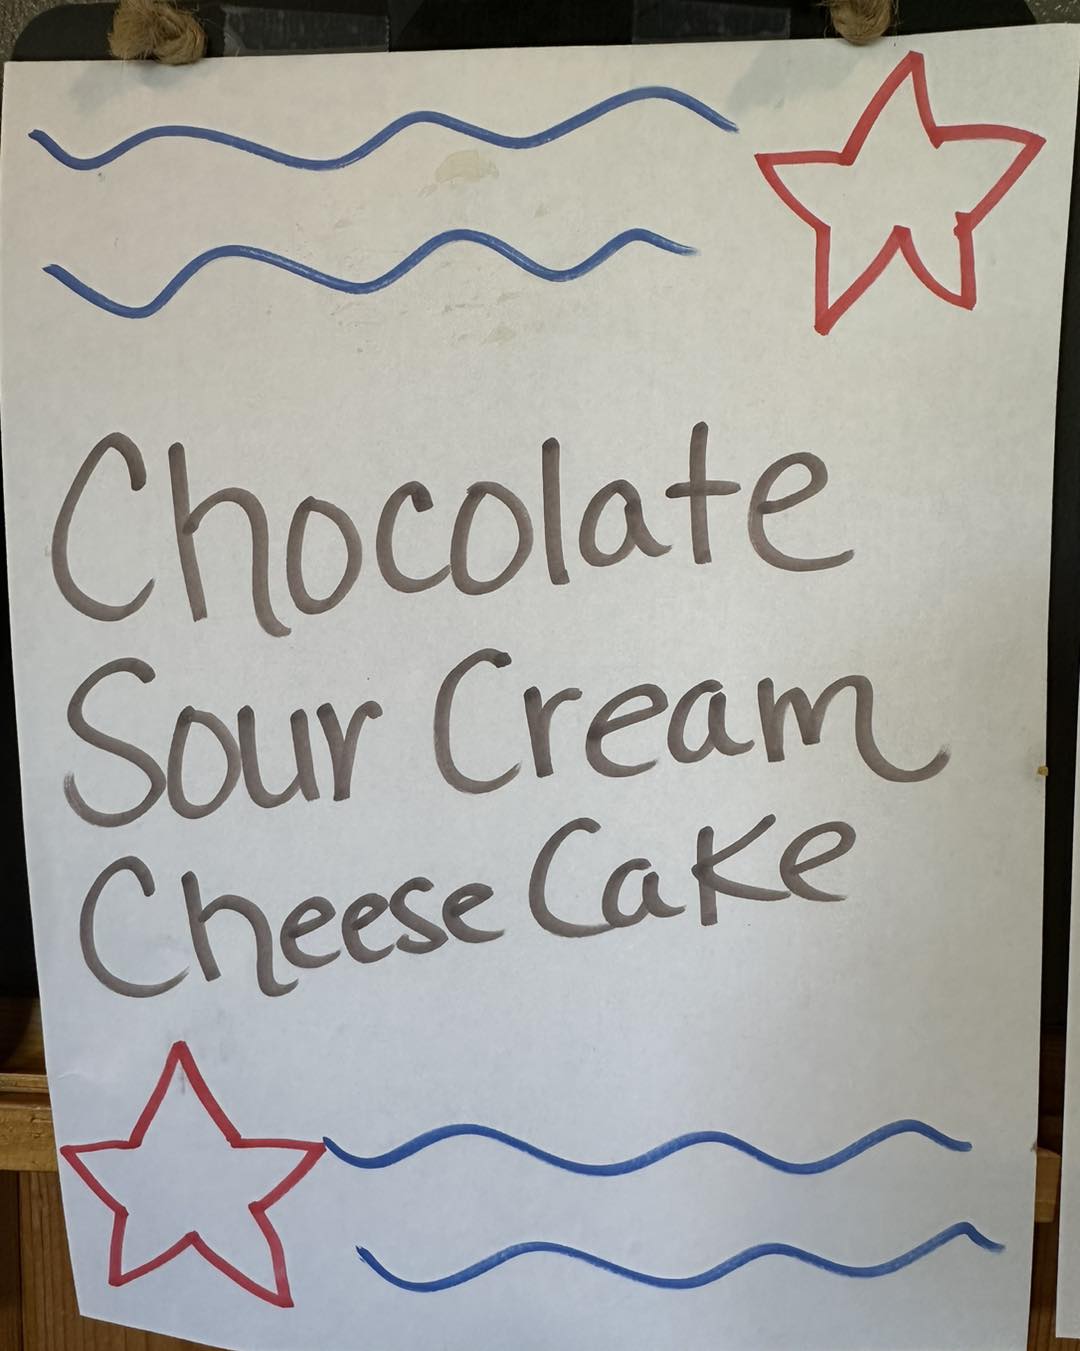 Chocolate
Sour Cream
Cheese Cake